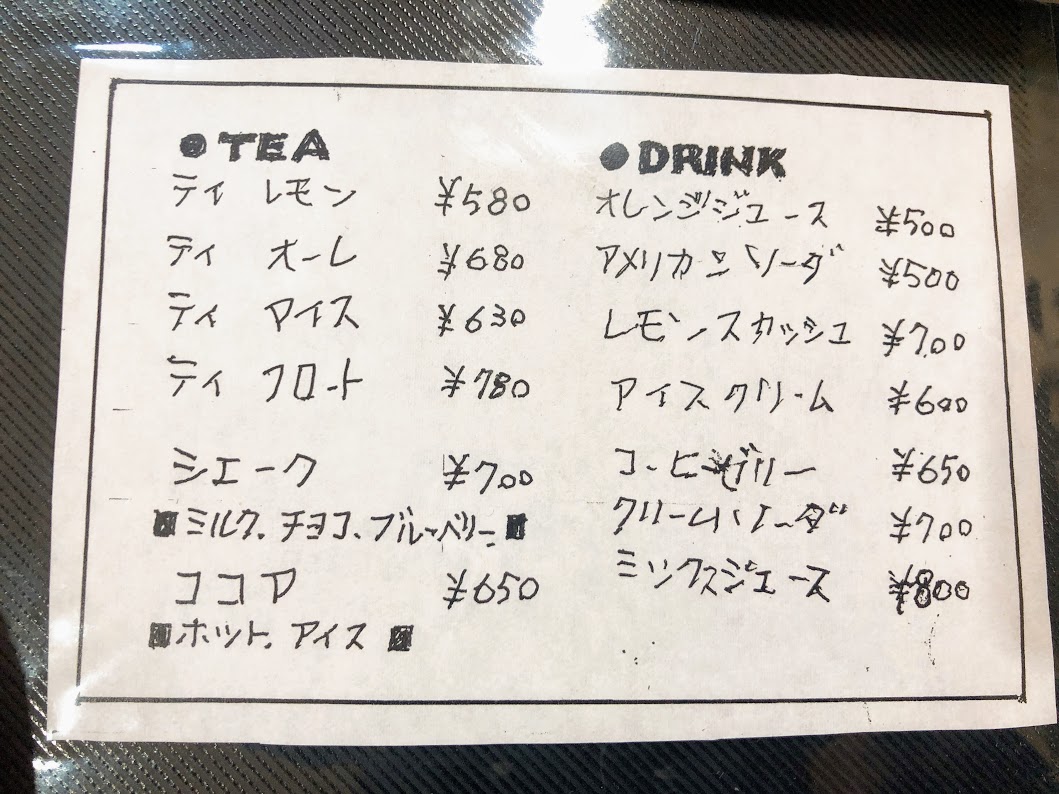 ● TEA
ティ レモン ¥580
ティ オーレ ¥680
ティ アイス ¥630
ティ フロート ¥780
シェーク ¥700
■ミルク、チョコ、ブルーベリー■
ココア ¥650
■ホット、アイス■
● DRINK
オレンジジュース ¥500
アメリカンソーダ ¥500
レモンスカッシュ ¥700
アイスクリーム ¥600
コーヒーゼリー ¥650
クリームソーダ ¥700
ミックスジュース ¥800